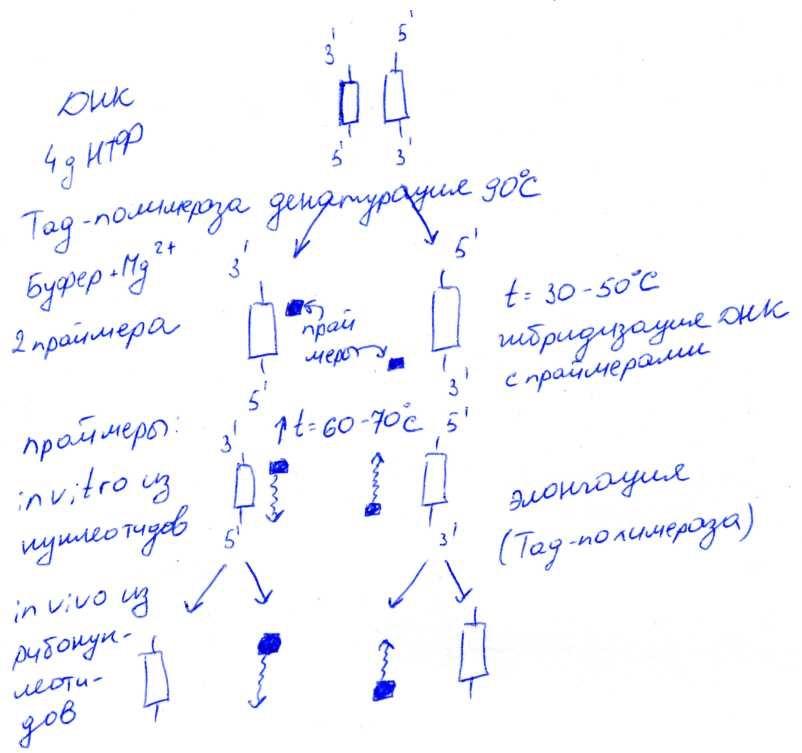 3' 5'
ДНК
4 д НТФ
5' 3'
Taq-полимераза денатурация 90°C
Буфер + Mg2+
3' 5'
2 праймера
прай
меры
t = 30-50°C
гибридизация ДНК
с праймерами
5' 3'
праймеры:
3' ↑t=60-70°C 5'
in vitro из
нуклеотидов
5' 3'
элонгация
(Taq-полимераза)
in vivo из
рибонук-
леоти-
дов